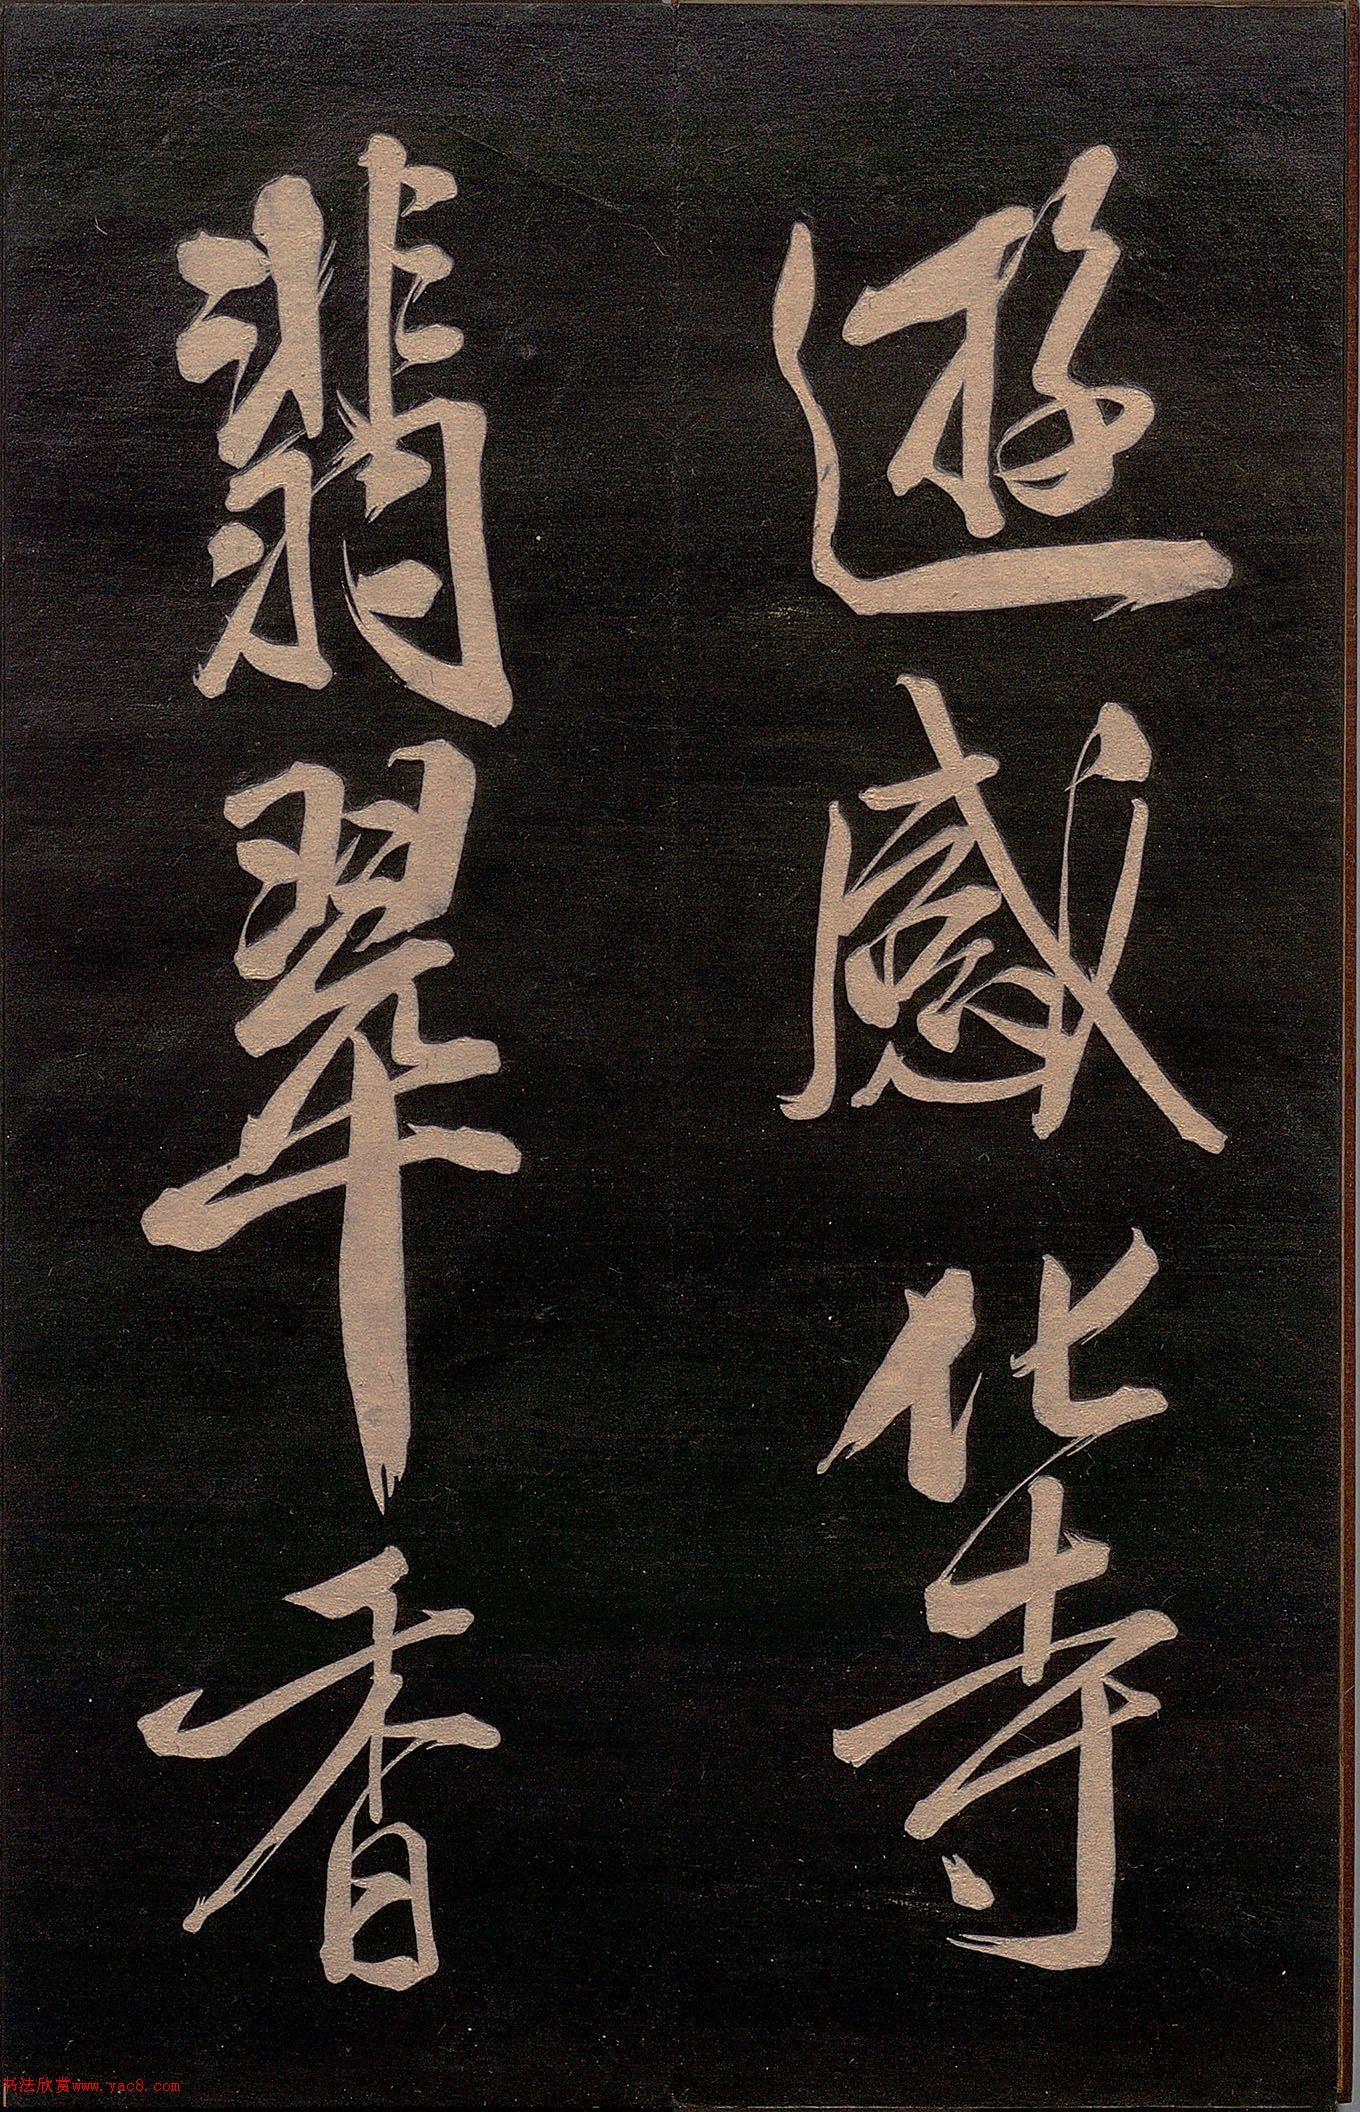 遊感化寺
翡翠香
书法欣赏www.yac8.com